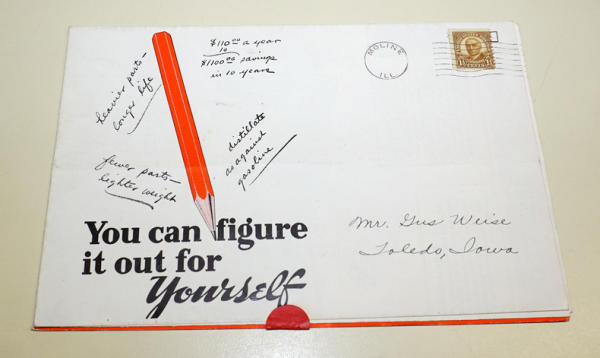 Heavier parts—
longer life
$110.00 a year
10
$1100.00 savings
in 10 years
MOLINE
ILL.
distillate
as against
gasoline
fewer parts—
lighter weight
You can figure
it out for
Yourself
Mr. Gus Weise
Toledo, Iowa